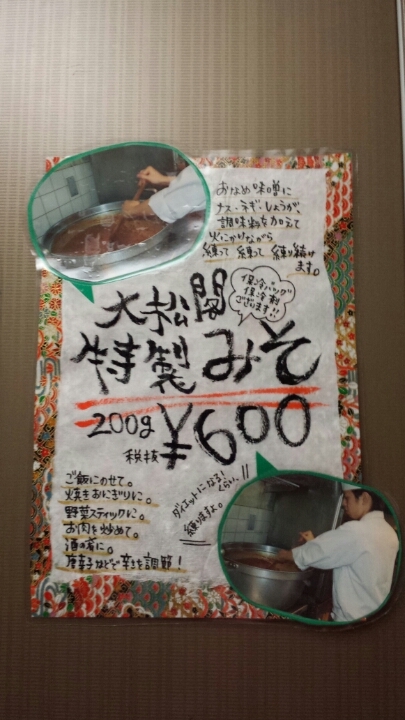 おなめ味噌に
ナス・ネギ・しょうが、
調味料を加えて
火にかけながら
練って 練って 練り続け
ます。
保冷バッグ
保冷剤
ございます!!
大松閣
特製みそ
200g ¥600
税抜
ご飯にのせて。
焼きおにぎりに。
野菜スティックに。
お肉を炒めて。
酒の肴に。
唐辛子などで辛さを調節！
ダイエットになる！
くらい、
練りますよ。